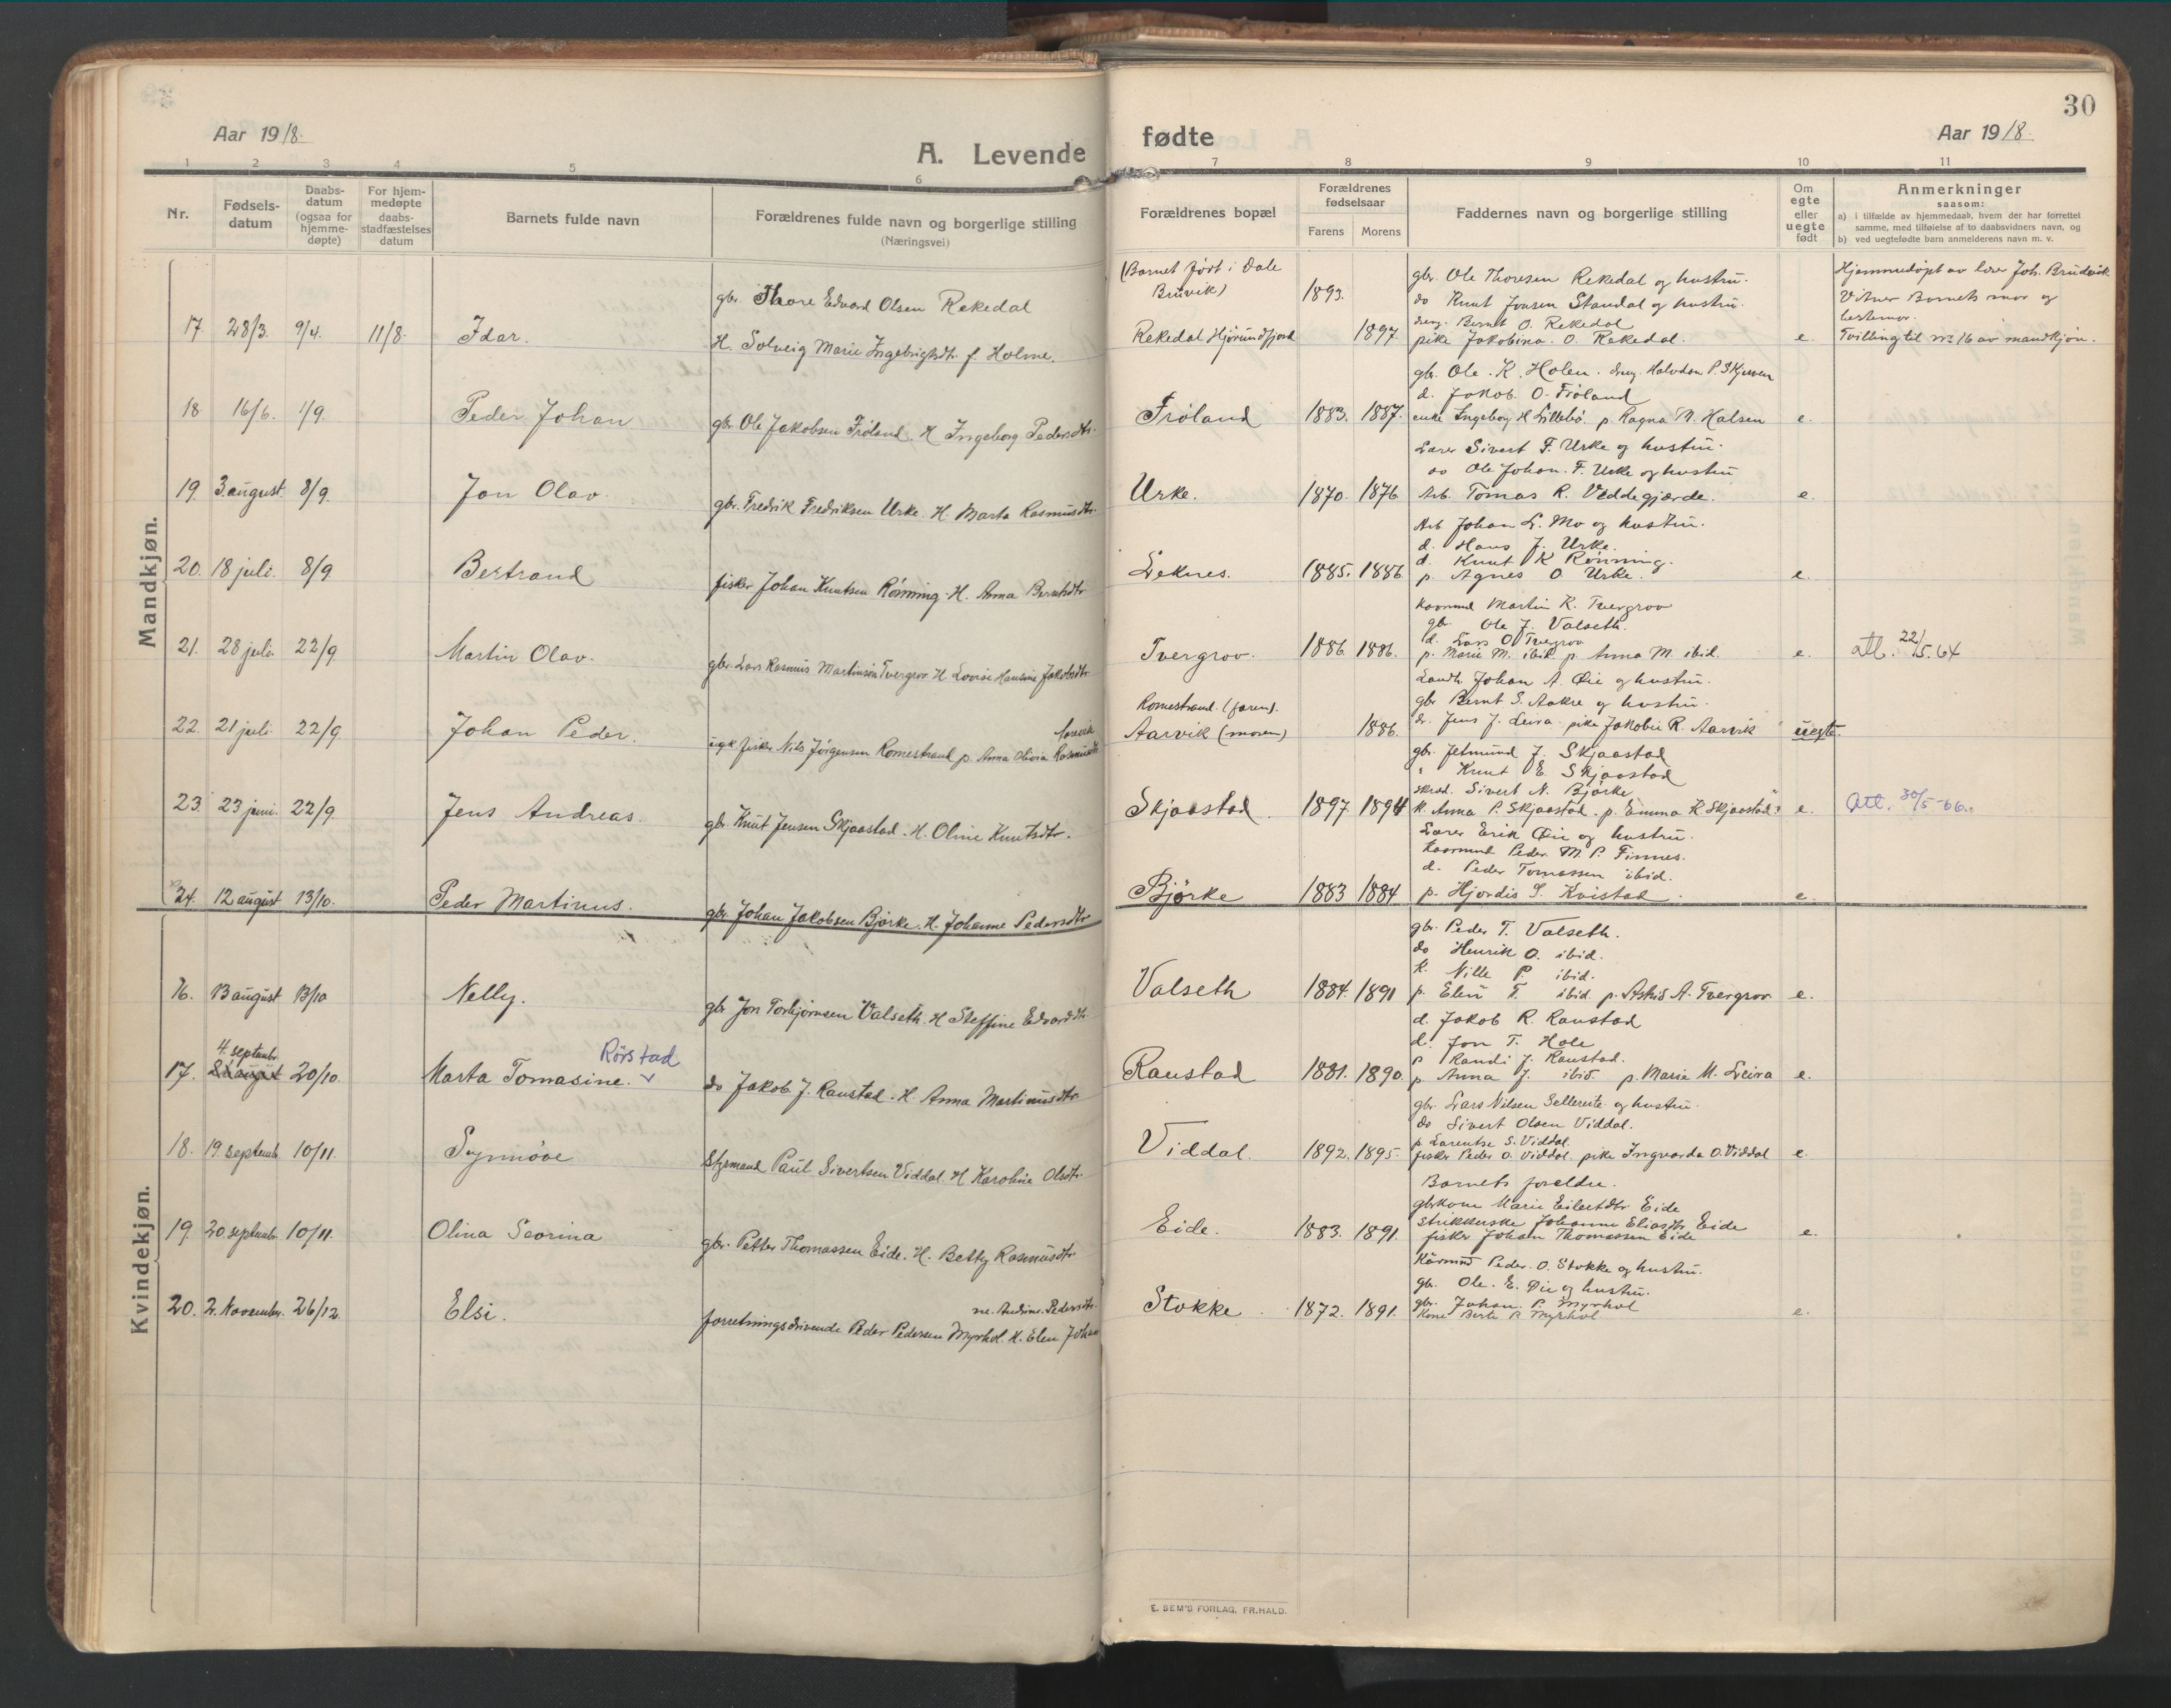 30
Aar 1918.
A. Levende
fødte
Aar 1918.
1 2 3 4 5 6 7 8 9 10 11
Nr.
Fødsels-
datum
Daabs-
datum
(ogsaa for
hjemme-
døpte)
For hjem-
medøpte
daabs-
stadfæstelses
datum
Barnets fulde navn
Forældrenes fulde navn og borgerlige stilling
(Næringsvei)
Forældrenes bopæl
Forældrenes
fødselsaar
Farens Morens
Faddernes navn og borgerlige stilling
Om
egte
eller
uegte
født
Anmerkninger
saasom:
a) i tilfælde av hjemmedaab, hvem der har forrettet
samme, med tilføielse af to daabsvidners navn, og
b) ved uegtefødte barn anmelderens navn m. v.
Mandkjøn.
17. 28/3. 9/4. 11/8. Idar.
gbr. Thore Edvard Olsen Rekedal
H. Solveig Marie Ingebrigtsdtr. f. Holme.
(Barnet født i Dale
Bruvik)
Rekedal Hjørundfjord
1893. 1897.
gbr. Ole Thoresen Rekedal og hustru.
do Knut Jonsen Standal og hustru.
dreng. Bernt O. Rekedal
pike Jakobina. O. Rekedal.
e.
Hjemmedøpt av lærer Joh. Brudvik
Vitner Barnets mor og
bestemor.
Tvilling til nr 16 av mandkjøn.
18 16/6. 1/9. Peder Johan
gbr. Ole Jakobsen Frøland. H Ingeborg Pedersdtr.
Frøland 1883. 1887.
gbr. Ole. K. Holen. dreng. Halvdan P. Skjersen
d. Jakob O. Frøland
enke Ingeborg H Lillebø. p. Ragna M. Halsen
e.
19. 3. august. 8/9. Jon Olav.
gbr. Fredrik Fredriksen Urke. H. Marta Rasmusdtr.
Urke. 1870. 1876
Lærer Sivert F. Urke og hustru.
do Ole Johan. F. Urke og hustru
Arb. Tomas R. Veddegjærde.
e.
20. 18 juli. 8/9 Bertrand
fisker Johan Knutsen Rønning. H. Anna Berntsdtr
Leknes. 1885. 1886
Arb Johan L. Mo og hustru.
d. Hans J. Urke.
d. Knut K Rønning.
p. Agnes O. Urke.
e.
21. 28 juli. 22/9 Martin Olav.
gbr. Lars Rasmus Martinsen Tvergrov H Lovise Hansine Jakobsdtr
Tvergrov. 1886 1886.
Kaarmand Martin R. Tvergrov
gbr. Ole J. Valseth.
d. Lars O Tvergrov
p. Marie M. ibid. p. Anna M. ibid.
e. att. 22/5.64
22. 21 juli. 22/9. Johan Peder.
ugk fisker Nils Jørgensen Romestrand p. Anna Olivia Rasmusdtr Aarvik
Romestrand. (faren).
Aarvik (moren) 1886.
Landh. Johan A. Øie og hustru.
gbr Bernt S. Aakre og hustru.
dr. Jens J. Leira. pike Jakobie R. Aarvik
uegte.
23. 23 juni. 22/9. Jens Andreas.
gbr. Knut Jensen Skjaastad. H. Oline Knutsdtr.
Skjaastad. 1897 1894
gbr. Jetmund J. Skjaastad
" Knut E. Skjaastad
skræd. Sivert N. Bjørke
k. Anna P. Skjaastad. p. Emma K Skjaastad.
e. att. 30/5-66.
24. 12 august 13/10. Peder Martinus.
gbr. Johan Jakobsen Bjørke. H. Johanne Pedersdtr
Bjørke 1883 1884
Lærer Erik Øie og hustru.
Kaarmand Peder M. P. Finnes.
d. Peder Tomassen ibid.
p. Hjordis S. Kvistad.
e.
Kvindekjøn.
16. 13 august 13/10 Nelly.
gbr. Jon Torbjørnsen Valseth. H Steffine Edvardsdtr.
Valseth 1884. 1891
gbr. Peder T. Valseth.
do Henrik O. ibid.
k. Nille P. ibid.
p. Elen T. ibid. p. Astrid A. Tvergrov
e.
4. septembr
17. 20/10. Marta Tomasine. Rörstad
do Jakob J. Raustad. H. Anna Martinusdtr
Raustad 1881. 1890.
d. Jakob R. Raustad
d. Jon T. Hole
p Randi J. Raustad.
p Anna J. ibid. p. Marie M. Leira
e.
18. 19 septemb. 10/11. Synnøve
Styrmand Paul Sivertsen Viddal. H Karoline Olsdtr.
Viddal. 1892. 1895.
gbr. Lars Nilsen Sellereite og hustru.
do Sivert Olsen Viddal.
p Larentse S. Viddal.
fisker Peder O. Viddal. pike Ingvarda O. Viddal
e.
19. 20 septembr. 10/11. Olina Severina
gbr. Petter Thomassen Eide. H. Betty Rasmusdtr
Eide. 1883. 1891.
Barnets foreldre.
gbrkone Marie Eilertsdtr Eide
strikkerske Johanne Eliasdtr Eide
fisker Johan Thomassen Eide
e.
20. 2. November. 26/12. Elsi.
forretningsdrivende Peder Pedersen Myrhol. H. Elen Johanne Andine Pedersdtr.
Stokke. 1872. 1891.
Kårmand Peder. O. Stokke og hustru.
gbr. Ole. E. Øie og hustru.
gbr. Johan. P. Myrhol
Kone Berte P. Myrhol
e.
E. SEM'S FORLAG, FR.HALD.